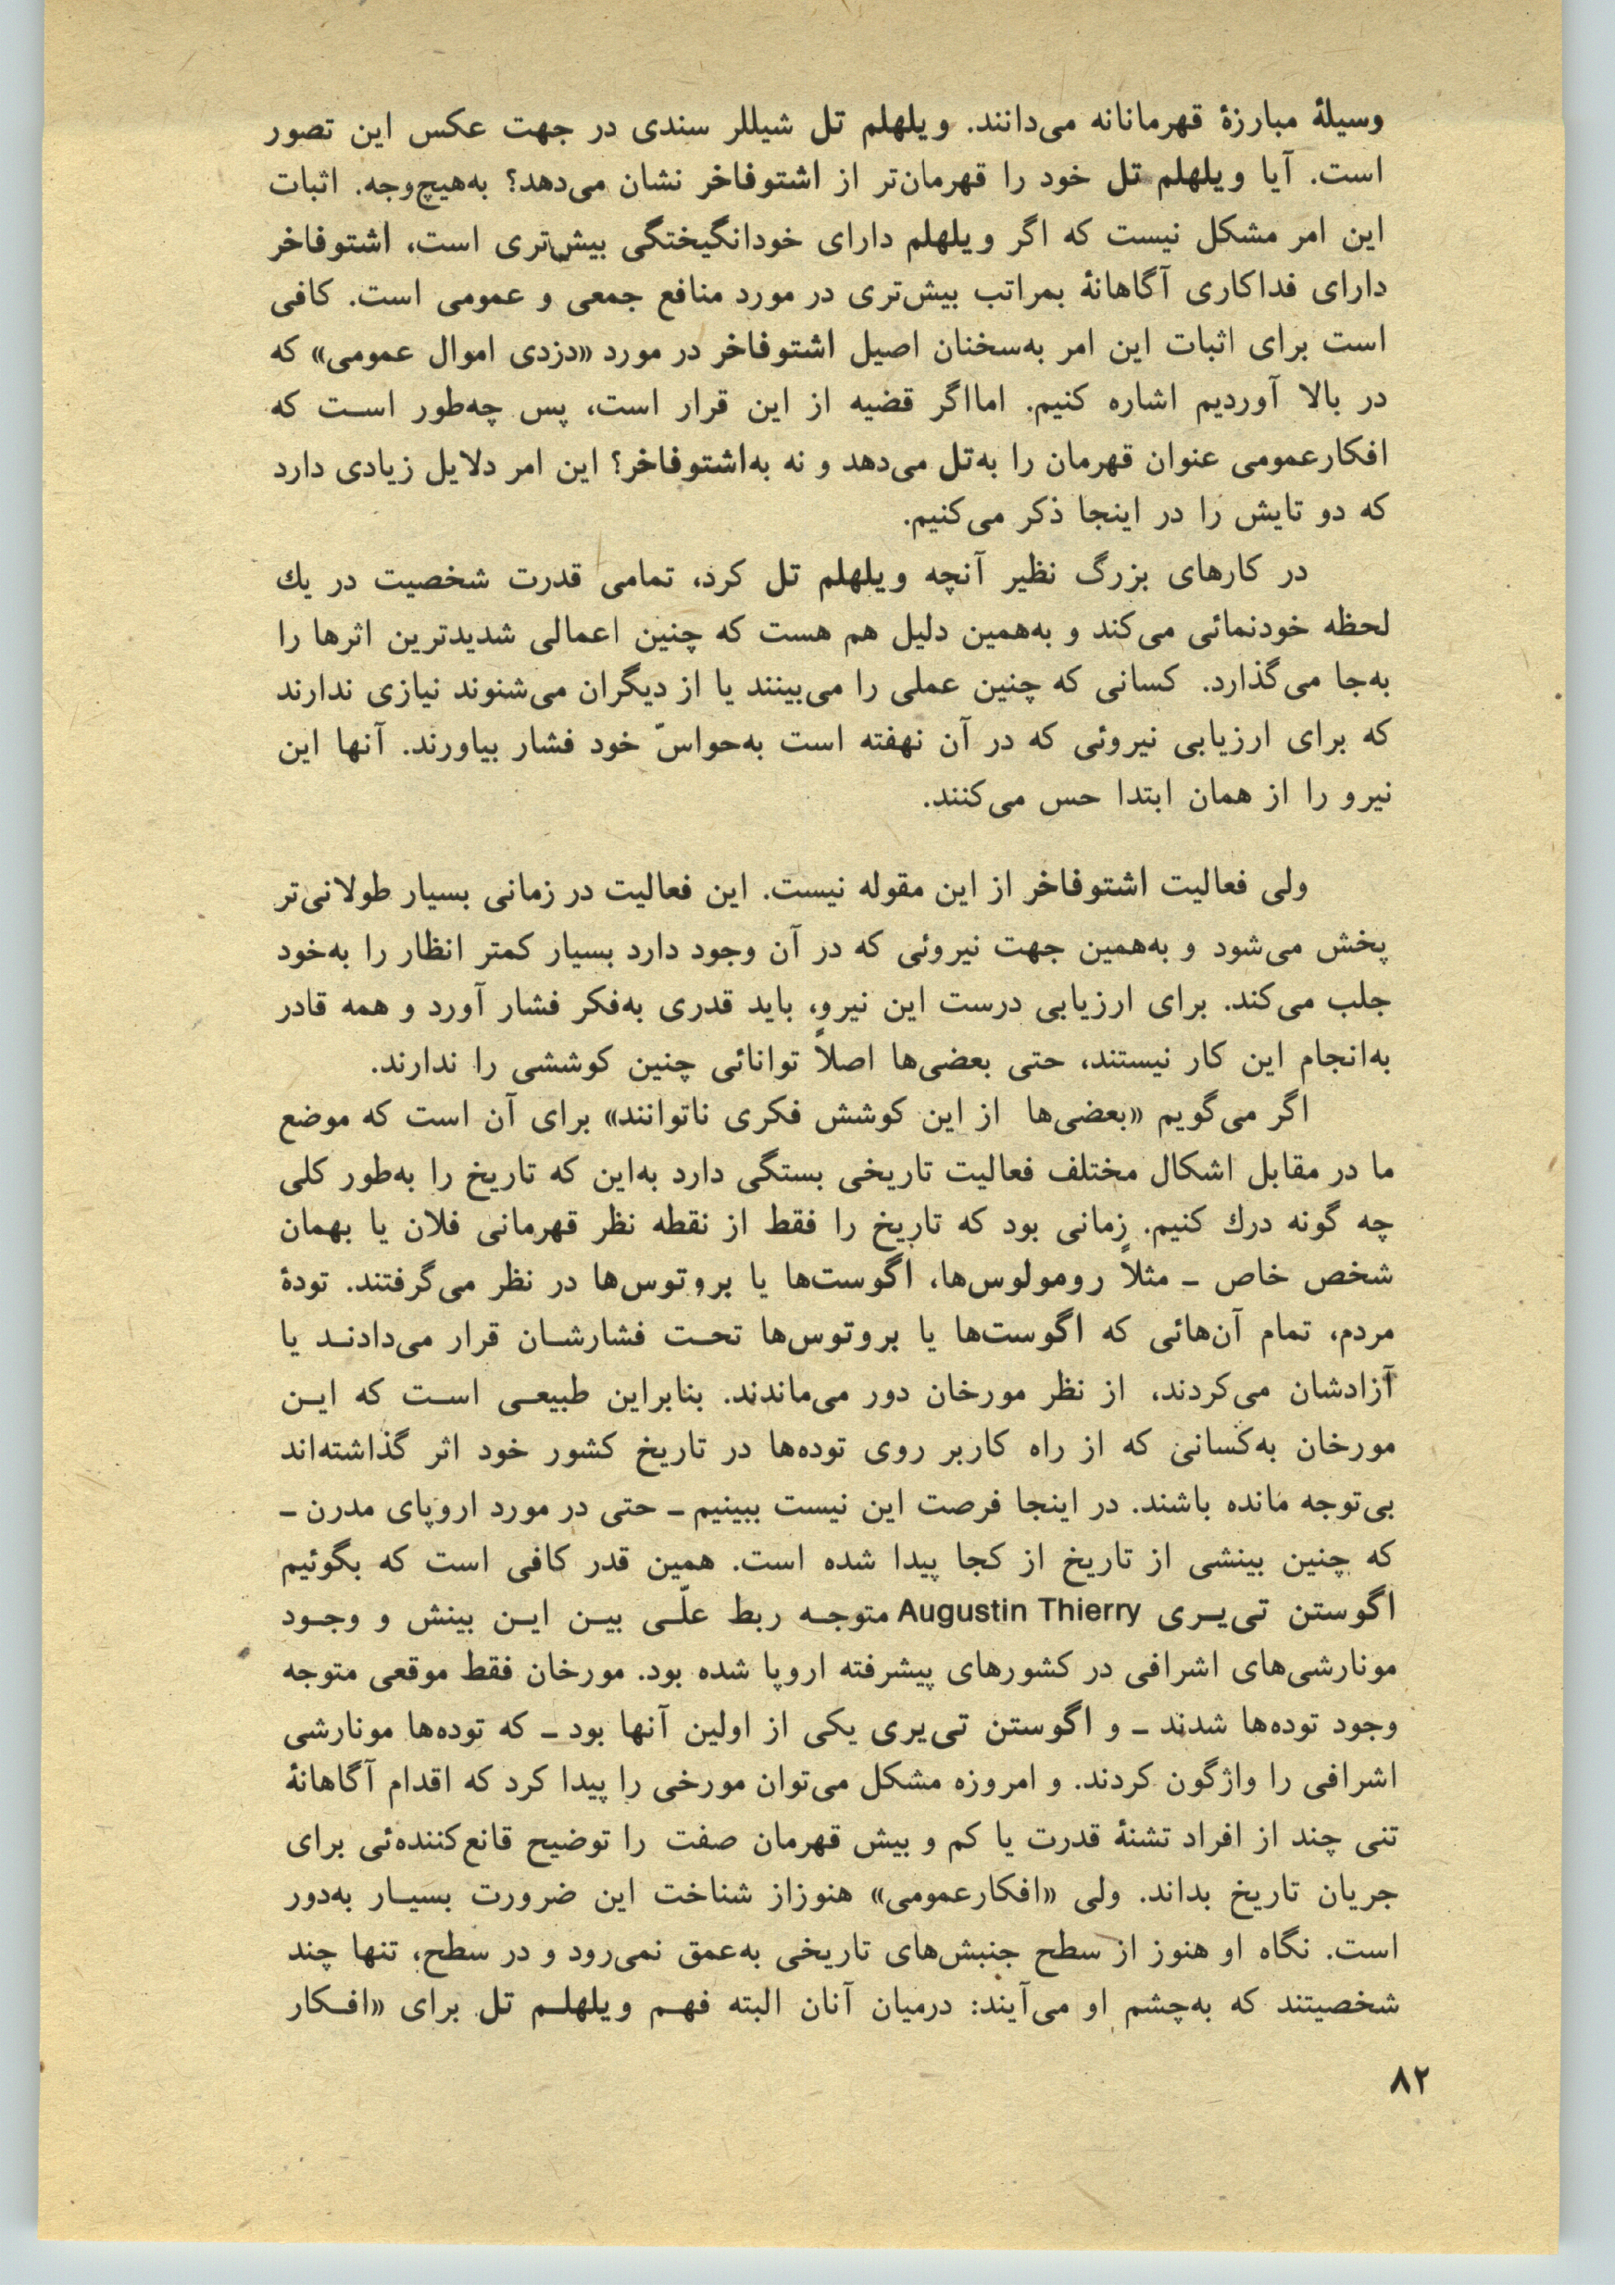 وسیلهٔ مبارزهٔ قهرمانانه می‌دانند. ویلهلم تل شیللر سندی در جهت عکس این تصور
است. آیا ویلهلم تل خود را قهرمان‌تر از اشتوفاخر نشان می‌دهد؟ به‌هیچ‌وجه. اثبات
این امر مشکل نیست که اگر ویلهلم دارای خودانگیختگی بیش‌تری است، اشتوفاخر
دارای فداکاری آگاهانهٔ بمراتب بیش‌تری در مورد منافع جمعی و عمومی است. کافی
است برای اثبات این امر به‌سخنان اصیل اشتوفاخر در مورد «دزدی اموال عمومی» که
در بالا آوردیم اشاره کنیم. امااگر قضیه از این قرار است، پس چه‌طور است که
افکارعمومی عنوان قهرمان را به‌تل می‌دهد و نه به‌اشتوفاخر؟ این امر دلایل زیادی دارد
که دو تایش را در اینجا ذکر می‌کنیم.
در کارهای بزرگ نظیر آنچه ویلهلم تل کرد، تمامی قدرت شخصیت در یك
لحظه خودنمائی می‌کند و به‌همین دلیل هم هست که چنین اعمالی شدیدترین اثرها را
به‌جا می‌گذارد. کسانی که چنین عملی را می‌بینند یا از دیگران می‌شنوند نیازی ندارند
که برای ارزیابی نیروئی که در آن نهفته است به‌حواسّ خود فشار بیاورند. آنها این
نیرو را از همان ابتدا حس می‌کنند.
ولی فعالیت اشتوفاخر از این مقوله نیست. این فعالیت در زمانی بسیار طولانی‌تر
پخش می‌شود و به‌همین جهت نیروئی که در آن وجود دارد بسیار کمتر انظار را به‌خود
جلب می‌کند. برای ارزیابی درست این نیرو، باید قدری به‌فکر فشار آورد و همه قادر
به‌انجام این کار نیستند، حتی بعضی‌ها اصلاً توانائی چنین کوششی را ندارند.
اگر می‌گویم «بعضی‌ها از این کوشش فکری ناتوانند» برای آن است که موضع
ما در مقابل اشکال مختلف فعالیت تاریخی بستگی دارد به‌این که تاریخ را به‌طور کلی
چه گونه درك کنیم. زمانی بود که تاریخ را فقط از نقطه نظر قهرمانی فلان یا بهمان
شخص خاص ـ مثلاً رومولوس‌ها، اگوست‌ها یا بروتوس‌ها در نظر می‌گرفتند. تودهٔ
مردم، تمام آن‌هائی که اگوست‌ها یا بروتوس‌ها تحت فشارشان قرار می‌دادند یا
آزادشان می‌کردند، از نظر مورخان دور می‌ماندند. بنابراین طبیعی است که این
مورخان به‌کسانی که از راه کاربر روی توده‌ها در تاریخ کشور خود اثر گذاشته‌اند
بی‌توجه مانده باشند. در اینجا فرصت این نیست ببینیم ـ حتی در مورد اروپای مدرن ـ
که چنین بینشی از تاریخ از کجا پیدا شده است. همین قدر کافی است که بگوئیم
اگوستن تی‌یری Augustin Thierry متوجه ربط علّی بین این بینش و وجود
مونارشی‌های اشرافی در کشورهای پیشرفته اروپا شده بود. مورخان فقط موقعی متوجه
وجود توده‌ها شدند ـ و اگوستن تی‌یری یکی از اولین آنها بود ـ که توده‌ها مونارشی
اشرافی را واژگون کردند. و امروزه مشکل می‌توان مورخی را پیدا کرد که اقدام آگاهانهٔ
تنی چند از افراد تشنهٔ قدرت یا کم و بیش قهرمان صفت را توضیح قانع‌کننده‌ئی برای
جریان تاریخ بداند. ولی «افکارعمومی» هنوزاز شناخت این ضرورت بسیار به‌دور
است. نگاه او هنوز از سطح جنبش‌های تاریخی به‌عمق نمی‌رود و در سطح، تنها چند
شخصیتند که به‌چشم او می‌آیند: درمیان آنان البته فهم ویلهلم تل برای «افکار
۸۲